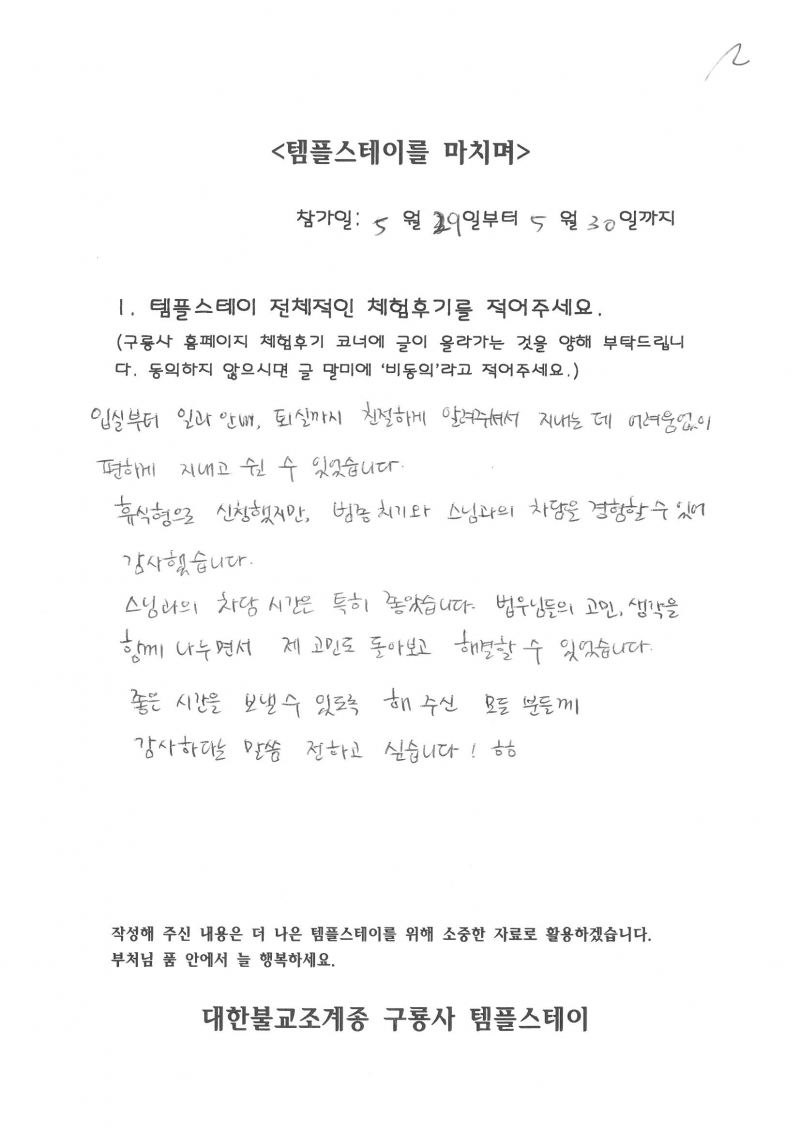 <템플스테이를 마치며>
참가일: 5 월 29일부터 5 월 30일까지
1. 템플스테이 전체적인 체험후기를 적어주세요.
(구룡사 홈페이지 체험후기 코너에 글이 올라가는 것을 양해 부탁드립니
다. 동의하지 않으시면 글 말미에 '비동의'라고 적어주세요.)
입실부터 일과 안내, 퇴실까지 친절하게 알려주셔서 지내는 데 어려움없이
편하게 지내고 쉴 수 있었습니다.
휴식형으로 신청했지만, 범종 치기와 스님과의 차담을 경험할 수 있어
감사했습니다.
스님과의 차담 시간은 특히 좋았습니다. 법우님들의 고민, 생각을
함께 나누면서 제 고민도 돌아보고 해결할 수 있었습니다.
좋은 시간을 보낼 수 있도록 해 주신 모든 분들께
감사하다는 말씀 전하고 싶습니다! ㅎㅎ
작성해 주신 내용은 더 나은 템플스테이를 위해 소중한 자료로 활용하겠습니다.
부처님 품 안에서 늘 행복하세요.
대한불교조계종 구룡사 템플스테이